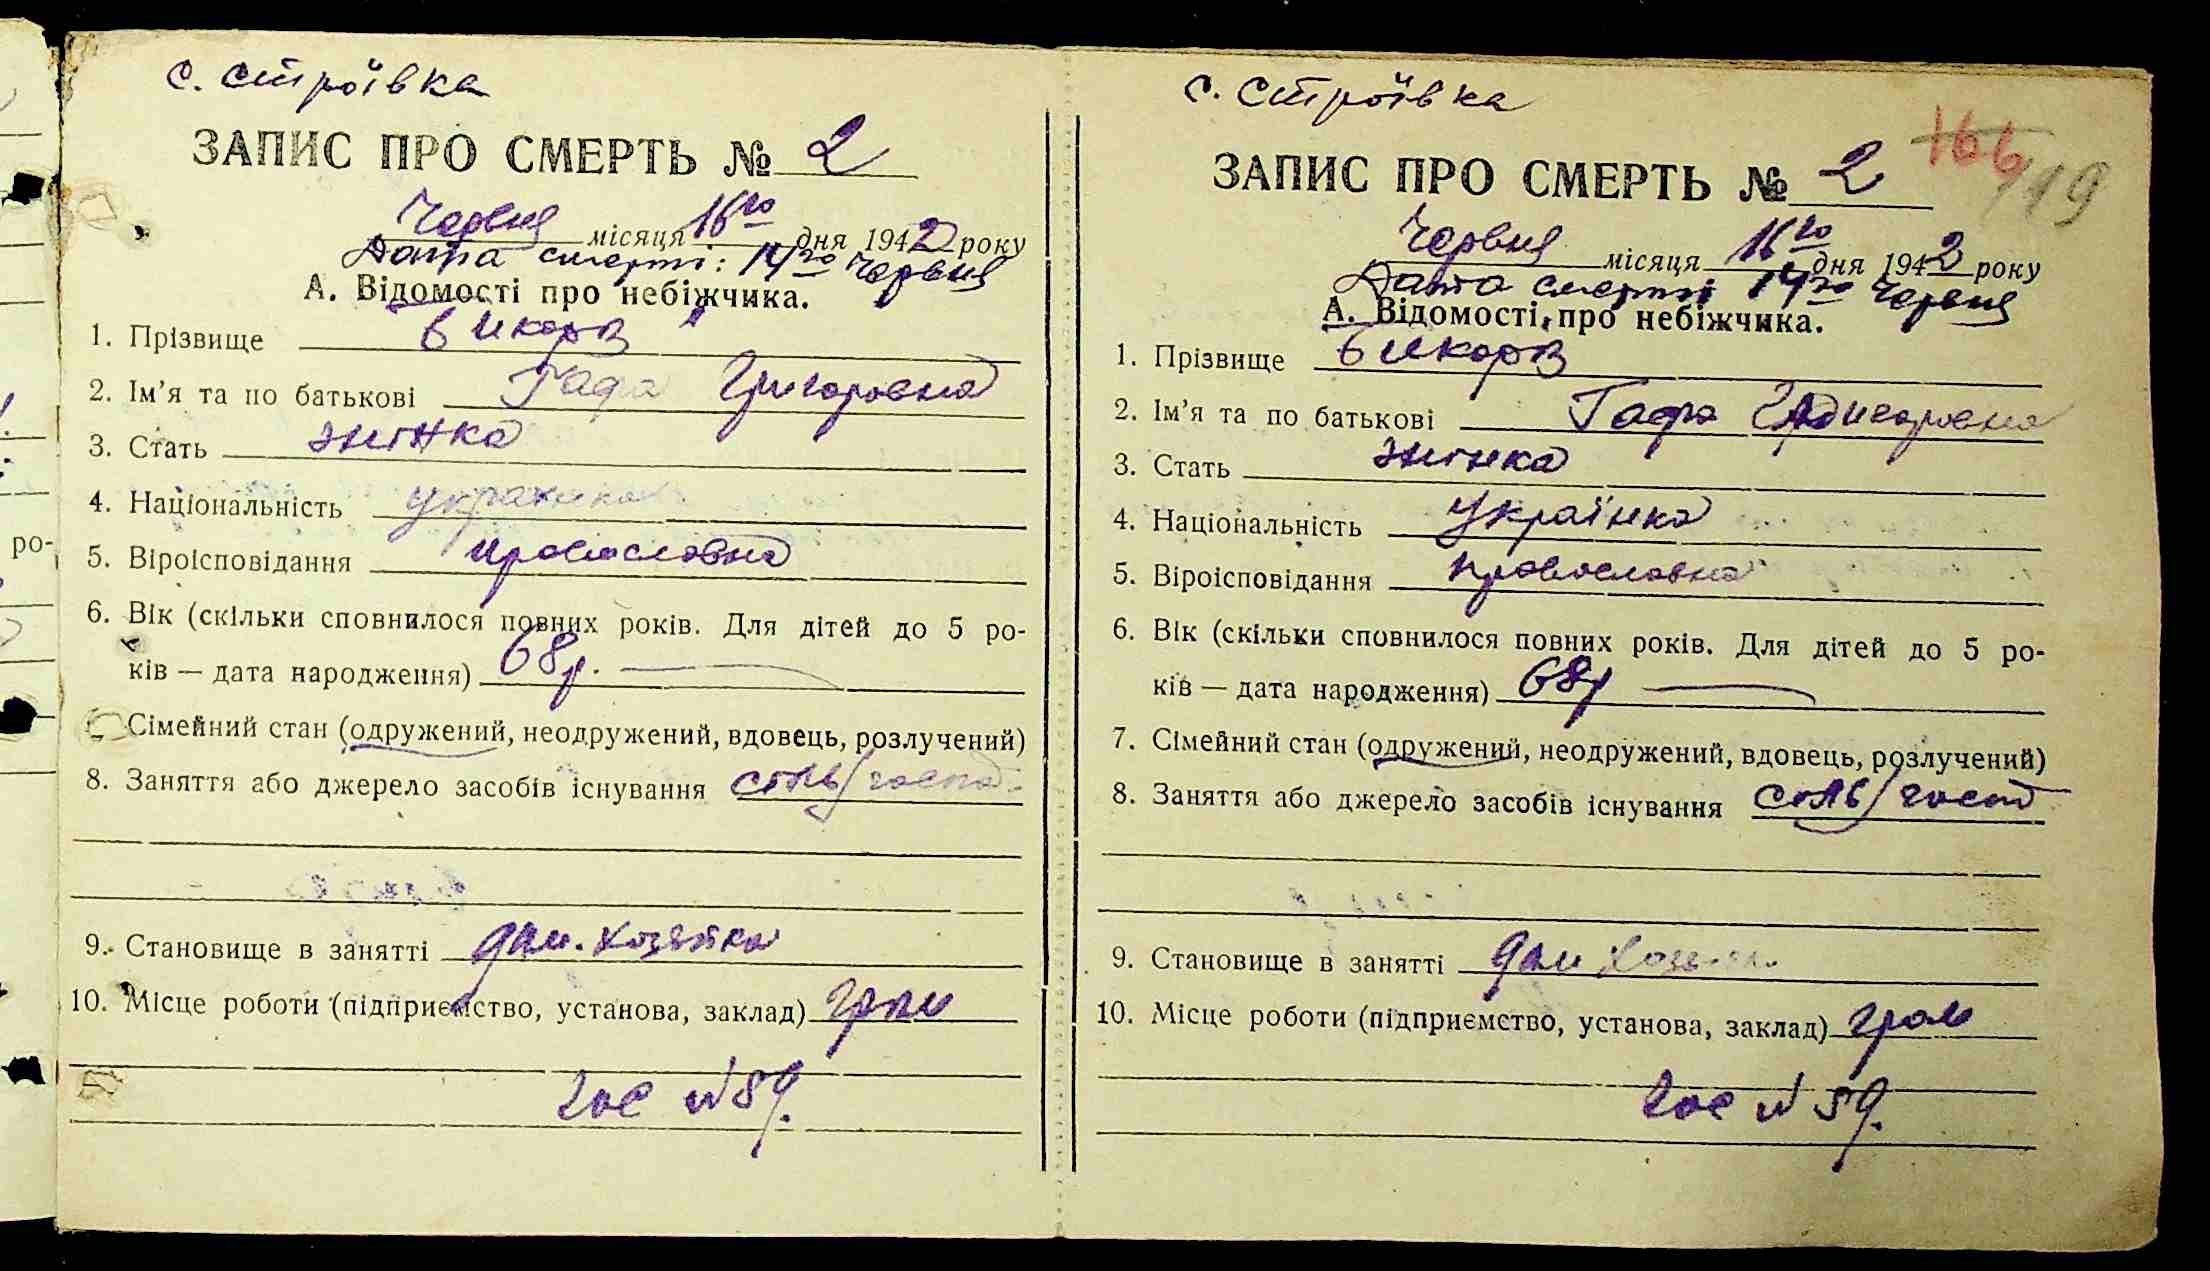 с. Строївка
ЗАПИС ПРО СМЕРТЬ № 2
Червня місяця 16го дня 1942 року
Дата смерти: 14го Червня
А. Відомості про небіжчика.
1. Прізвище
2. Ім'я та по батькові Григоровна
3. Стать жінка
4. Національність українка
5. Віроісповідання православна
6. Вік (скільки сповнилося повних років. Для дітей до 5 ро-
ків — дата народження) 68 р. —
Сімейний стан (одружений, неодружений, вдовець, розлучений)
8. Заняття або джерело засобів існування сель/госпо
9. Становище в занятті дом. хозяйка
10. Місце роботи (підприємство, установа, заклад) гром
гос № 59.
ро-
с. Строївка
166
119
ЗАПИС ПРО СМЕРТЬ № 2
Червня місяця 16го дня 1942 року
Дата смерти 14го Червня
А. Відомості про небіжчика.
1. Прізвище
2. Ім'я та по батькові
3. Стать жінка
4. Національність українка
5. Віроісповідання православна
6. Вік (скільки сповнилося повних років. Для дітей до 5 ро-
ків — дата народження) 68 р —
7. Сімейний стан (одружений, неодружений, вдовець, розлучений)
8. Заняття або джерело засобів існування сель/госп
9. Становище в занятті дом
10. Місце роботи (підприємство, установа, заклад) гром
гос № 59.